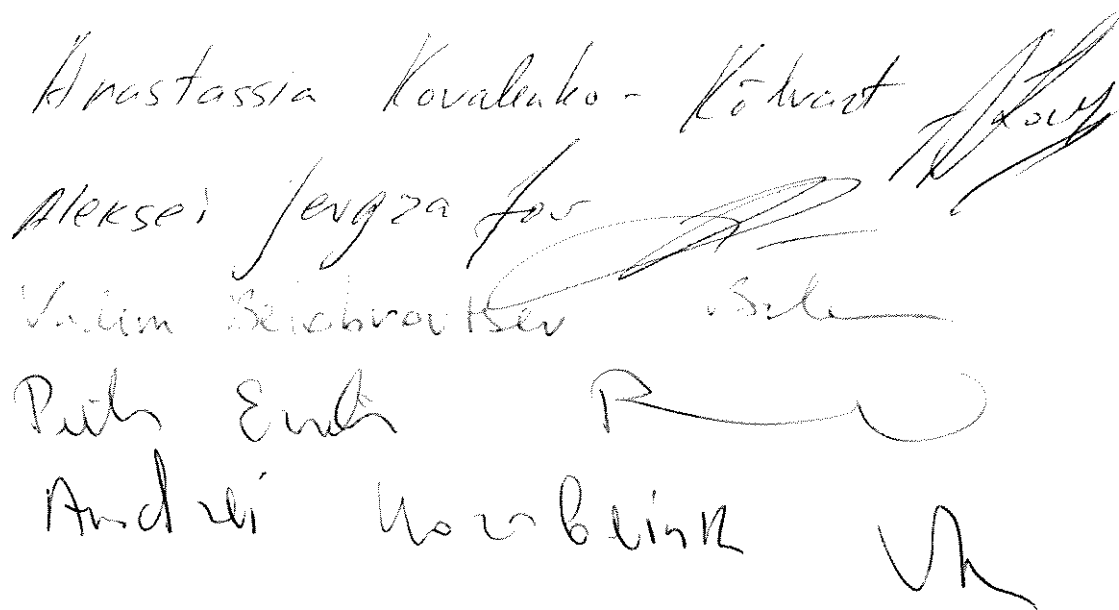 Anastassia Kovalenko-Kõlvart
Aleksei Jevgrafov
Vadim Belobrovtsev
Andrei Korobeinik